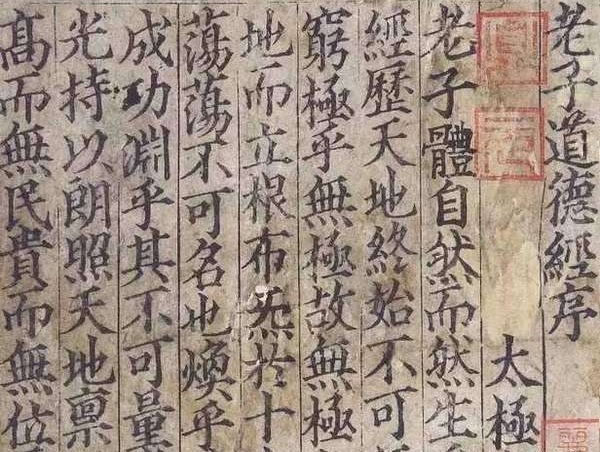 老子道德經序
太極
老子體自然而然生
經歷天地終始不可
窮極乎無極故無極
地而立根布炁於十
蕩蕩不可名也煥乎
成功淵乎其不可量
光持以朗照天地稟
髙而無民貴而無位